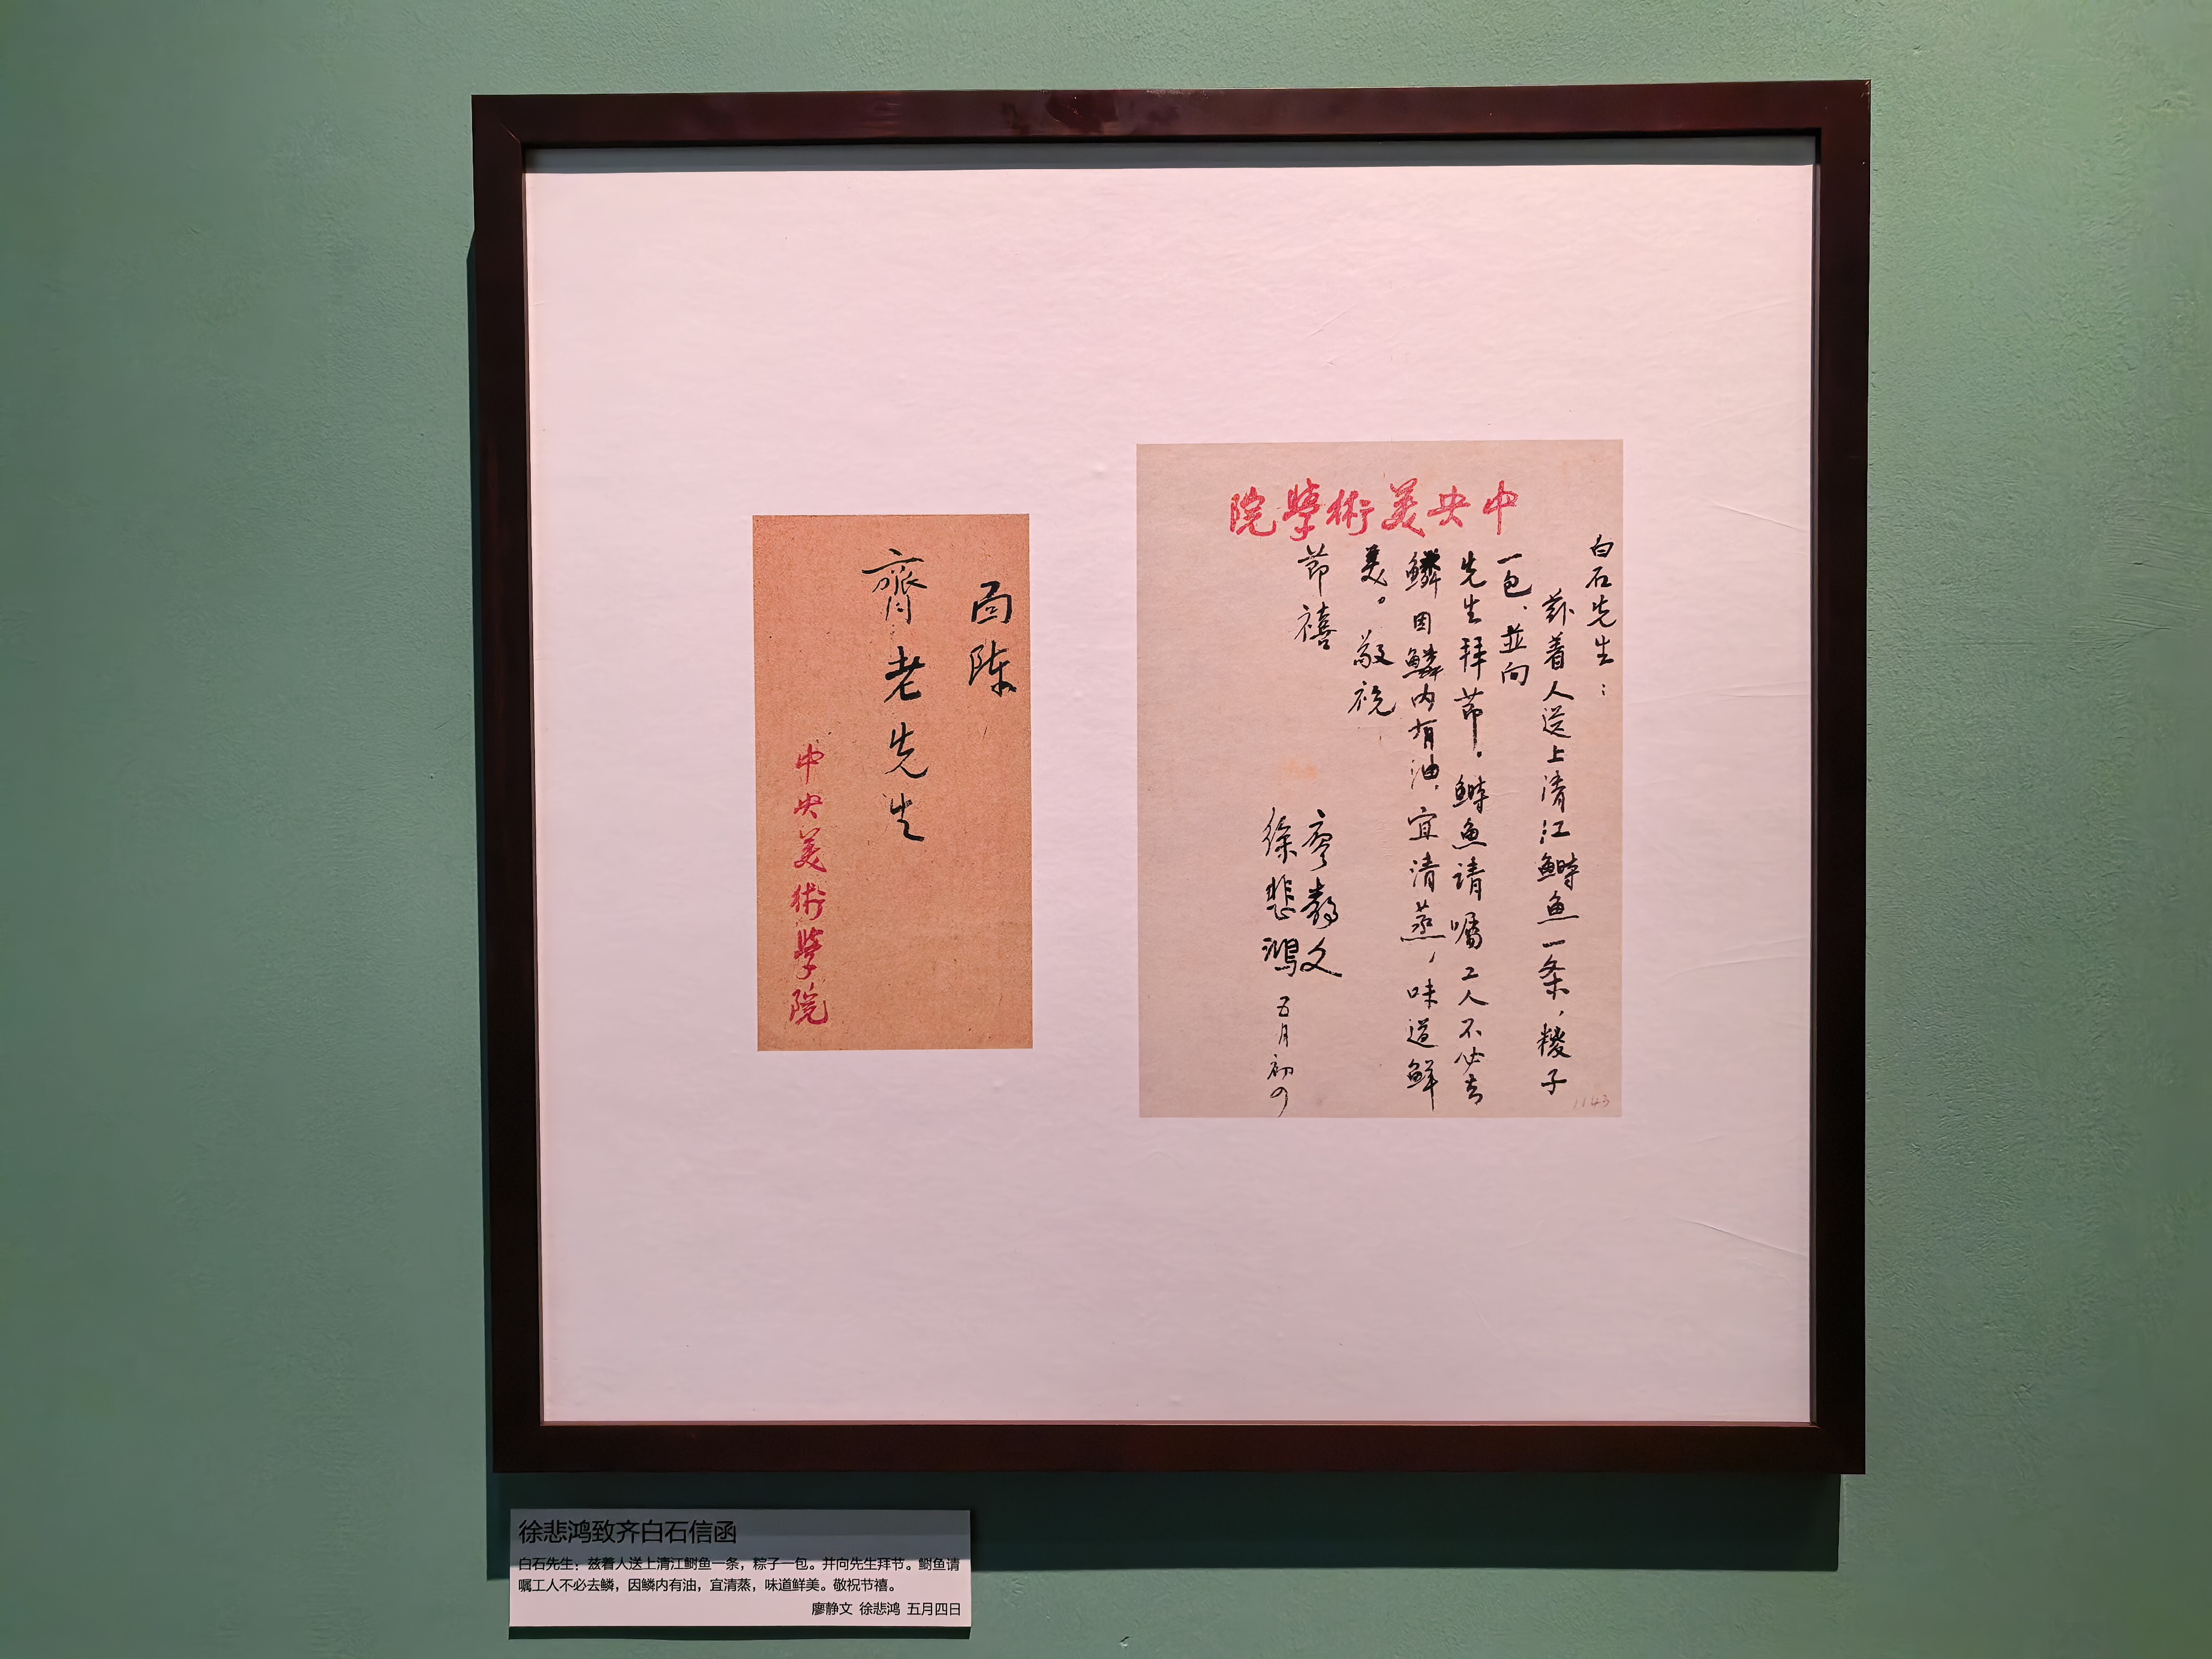 中央美術學院
白石先生：
茲着人送上清江鰣魚一条，糉子
一包、並向
先生拜节。鰣魚请嘱工人不必去
鱗因鱗内有油，宜清蒸，味道鲜
美。敬祝
节禧
廖静文
徐悲鴻 五月初四
1143
面陈
齊老先生
中央美術學院
徐悲鸿致齐白石信函
白石先生：兹着人送上清江鲥鱼一条，粽子一包。并向先生拜节。鲥鱼请
嘱工人不必去鳞，因鳞内有油，宜清蒸，味道鲜美。敬祝节禧。
廖静文 徐悲鸿 五月四日